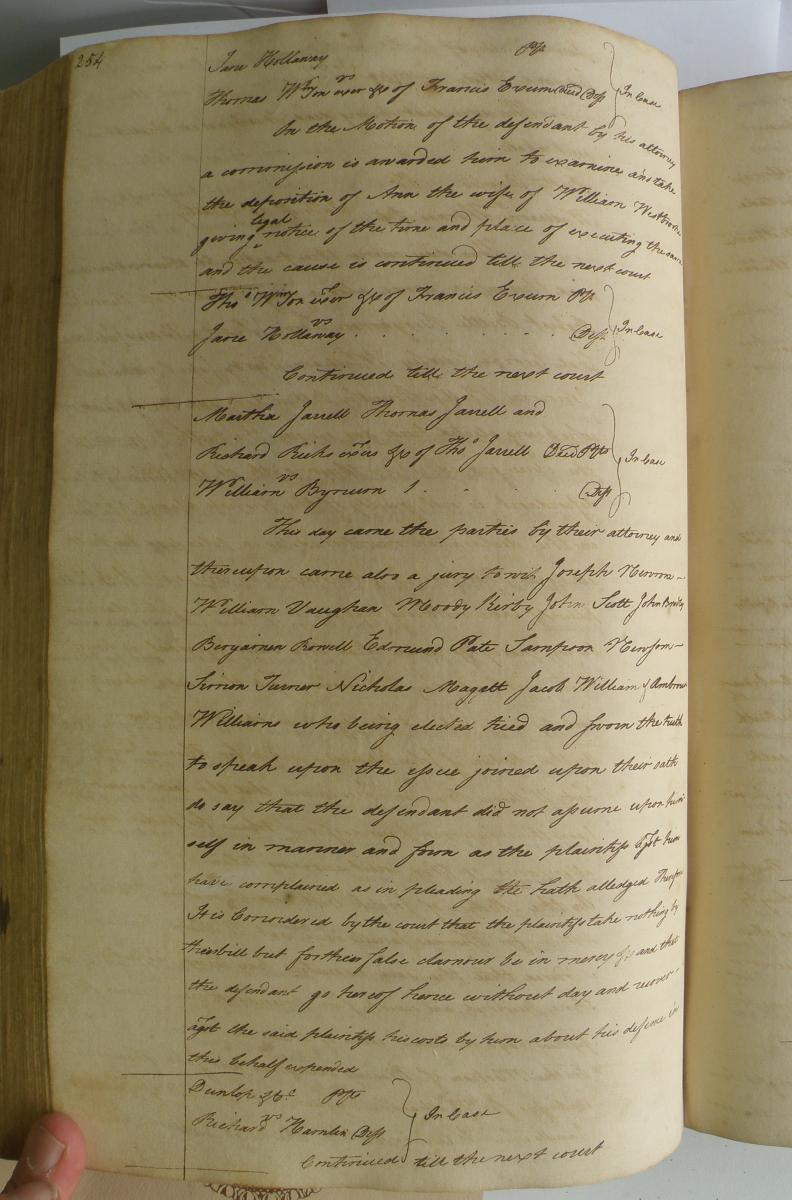 254
Jane Hollaway Plt
vs
Thomas Wm Ton exer &c of Francis Exum decd Deft } In Case
On the Motion of the defendant by his attorney
a commission is awarded him to examine and take
the deposition of Ann the wife of William Westbrook
giving legal notice of the time and place of executing the same
and the cause is continued till the next court
Thos Wm Ton exer &c of Francis Exum Plt
vs } In Case
Jane Hollaway . . . . . . . Deft
Continued till the next court
Martha Jarrell Thomas Jarrell and
Richard Ricks exers &c of Thos Jarrell Decd Plts
vs } In Case
William Bynum 1 . . . Deft
This day came the parties by their attorney and
thereupon came also a jury to wit Joseph
William Vaughan Moody Kirby John Scott John
Benjamen Rowell Edmund Pate Sampson Newsom
Simon Turner Nicholas Magett Jacob William & Ambrose
Williams who being elected tried and sworn the truth
to speak upon the issue joined upon their oath
do say that the defendant did not assume upon him
self in manner and form as the plaintiffs agst him
have complained as in pleading he hath alledged Therefore
It is Considered by the court that the plaintiffs take nothing by
their bill but for their false clamour be in mercy &c and that
the defendant go hereof hence without day and recover
agst the said plaintiffs his costs by him about his defence in
this behalf expended
Dunlop & Co Plts
vs } In Case
Richard Hamlin Deft
Continued till the next court